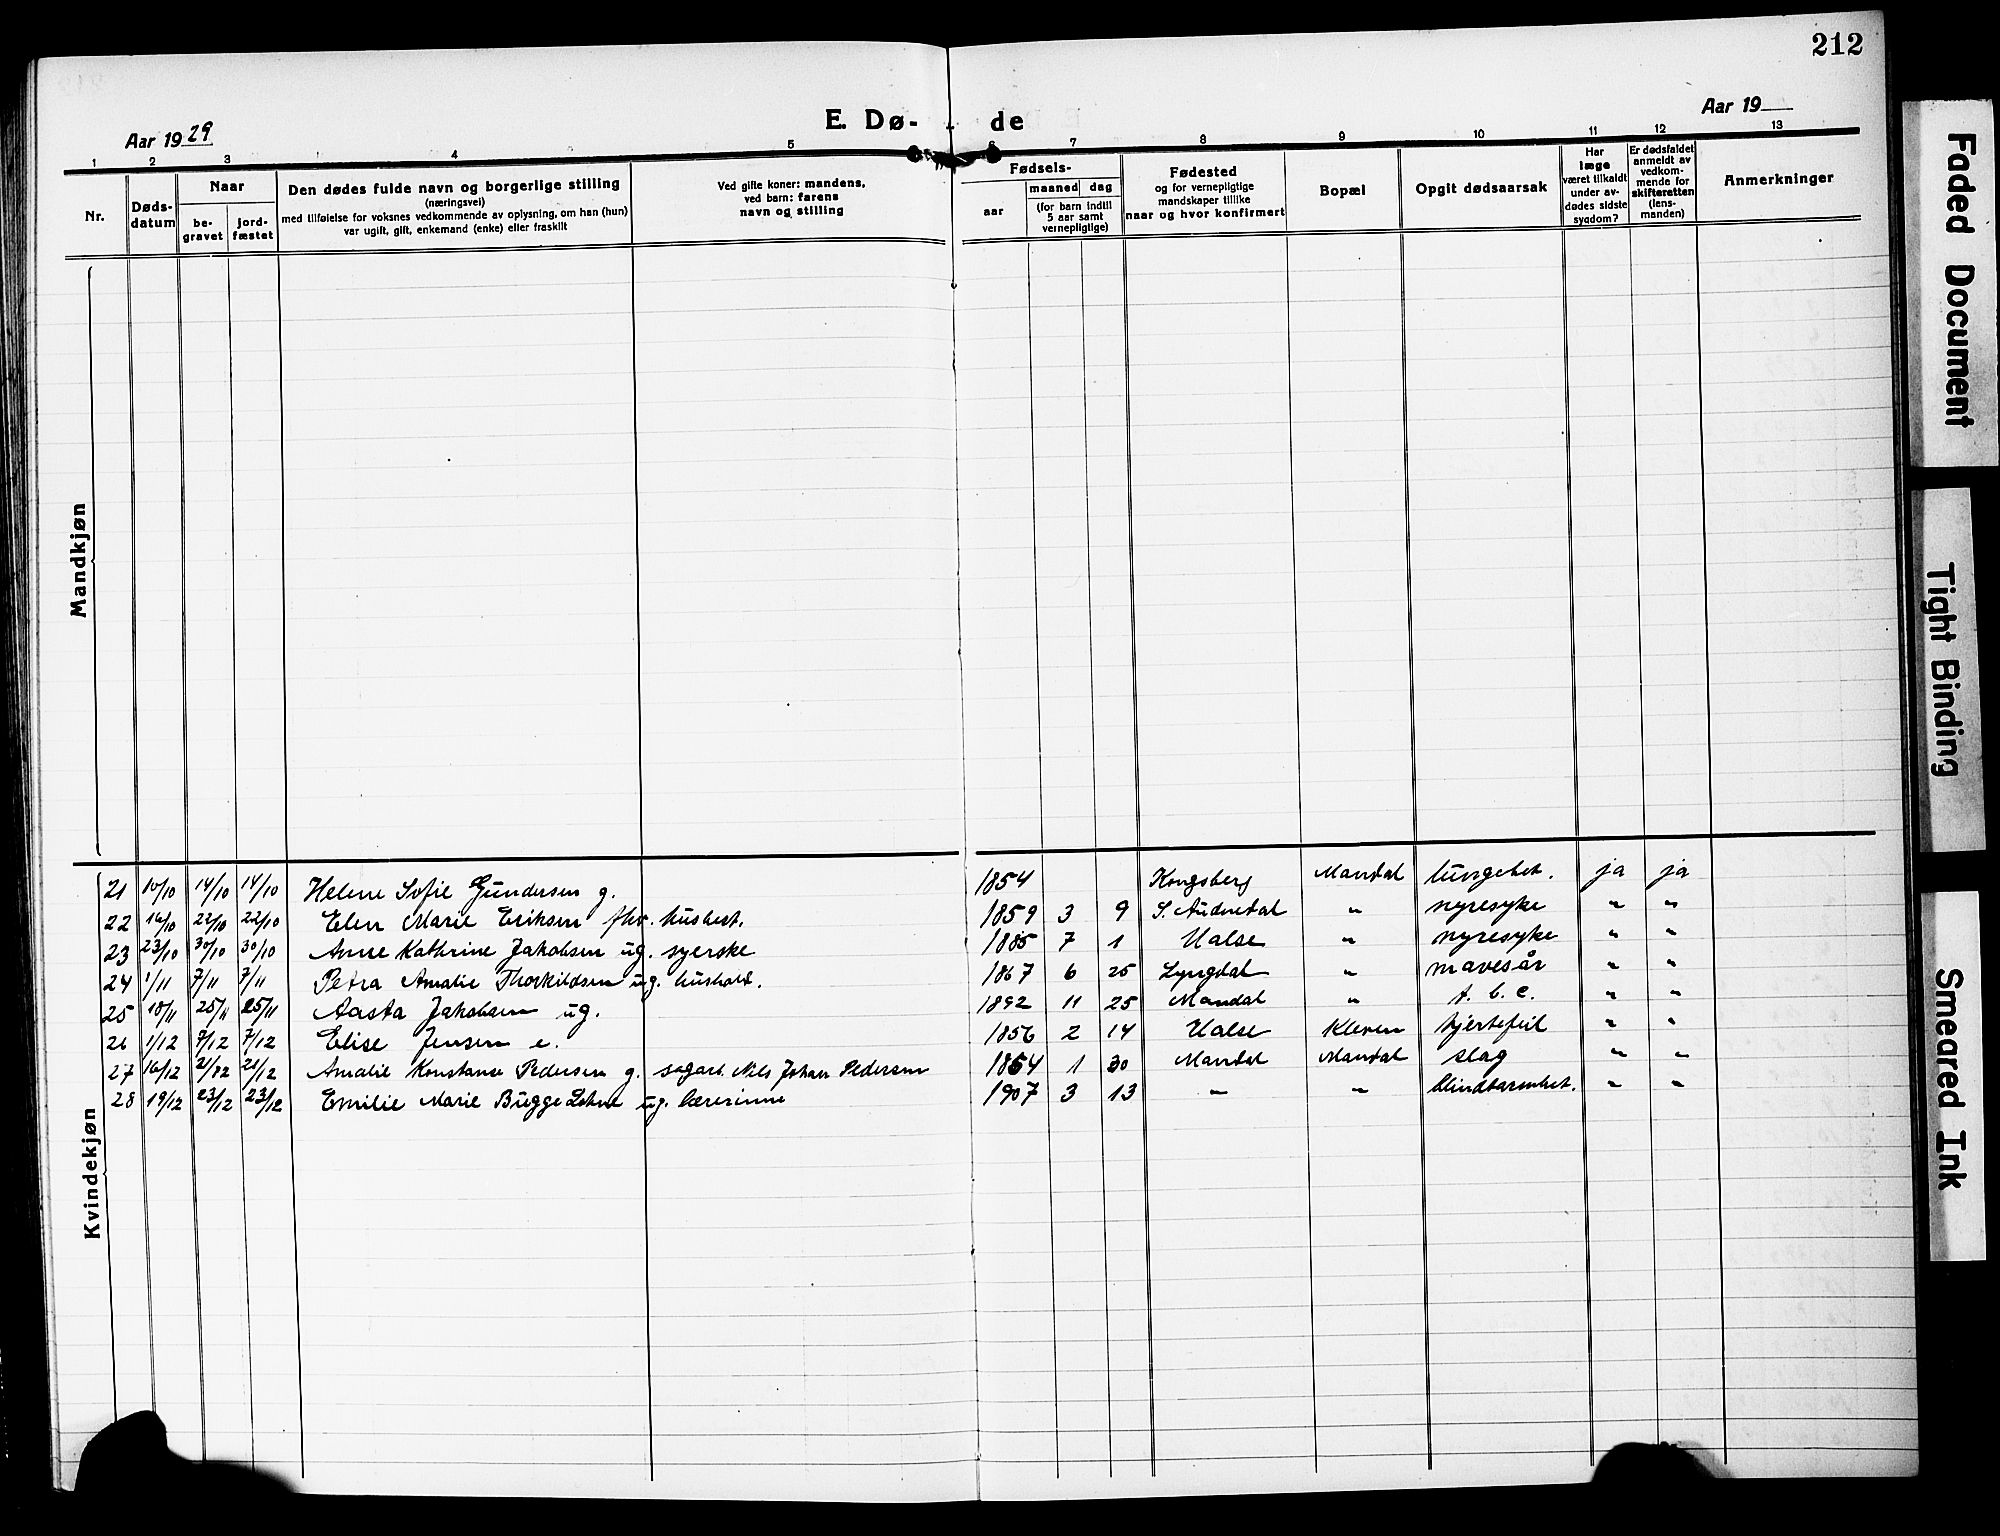 212
Aar 1929
E. Dø-
de
Aar 19
1 2 3 4 5 6 7 8 9 10 11 12 13
Nr.
Døds-
datum
Naar
be-
gravet
jord-
fæstet
Den dødes fulde navn og borgerlige stilling
(næringsvei)
med tilføielse for voksnes vedkommende av oplysning, om han (hun)
var ugift, gift, enkemand (enke) eller fraskilt
Ved gifte koner: mandens,
ved barn: farens
navn og stilling
Fødsels-
aar
maaned dag
(for barn indtil
5 aar samt
vernepligtige)
Fødested
og for vernepligtige
mandskaper tillike
naar og hvor konfirmert
Bopæl
Opgit dødsaarsak
Har
læge
været tilkaldt
under av-
dødes sidste
sygdom?
Er dødsfaldet
anmeldt av
vedkom-
mende for
skifteretten
(lens-
manden)
Anmerkninger
Mandkjøn
Kvindekjøn
21 10/10 14/10 14/10 Helene Sofie Gundersen g. 1854 Kongsberg Mandal lungebet. ja ja
22 16/10 22/10 22/10 Elen Marie Eriksen fhv. husbest. 1859 3 9 S. Audnedal " nyresyke " "
23 23/10 30/10 30/10 Anne Kathrine Jakobsen ug. syerske 1885 7 1 Halse " nyresyke " "
24 1/11 7/11 7/11 Petra Amalie Thorkildsen ug. hushold. 1867 6 25 Lyngdal " mavesår " "
25 18/11 25/11 25/11 Aasta Jakobsen ug. 1892 11 25 Mandal " t. b. c. " "
26 1/12 7/12 7/12 Elise Jensen e. 1856 2 14 Halse Kleven hjertefeil " "
27 16/12 21/12 21/12 Amalie Konstanse Pedersen g. sagarb. Nils Johan Pedersen 1864 1 30 Mandal Mandal slag " "
28 19/12 23/12 23/12 Emilie Marie Bugge ug. lærerinne 1907 3 13 " " blindtarmbet. " "
Faded Document
Tight Binding
Smeared Ink